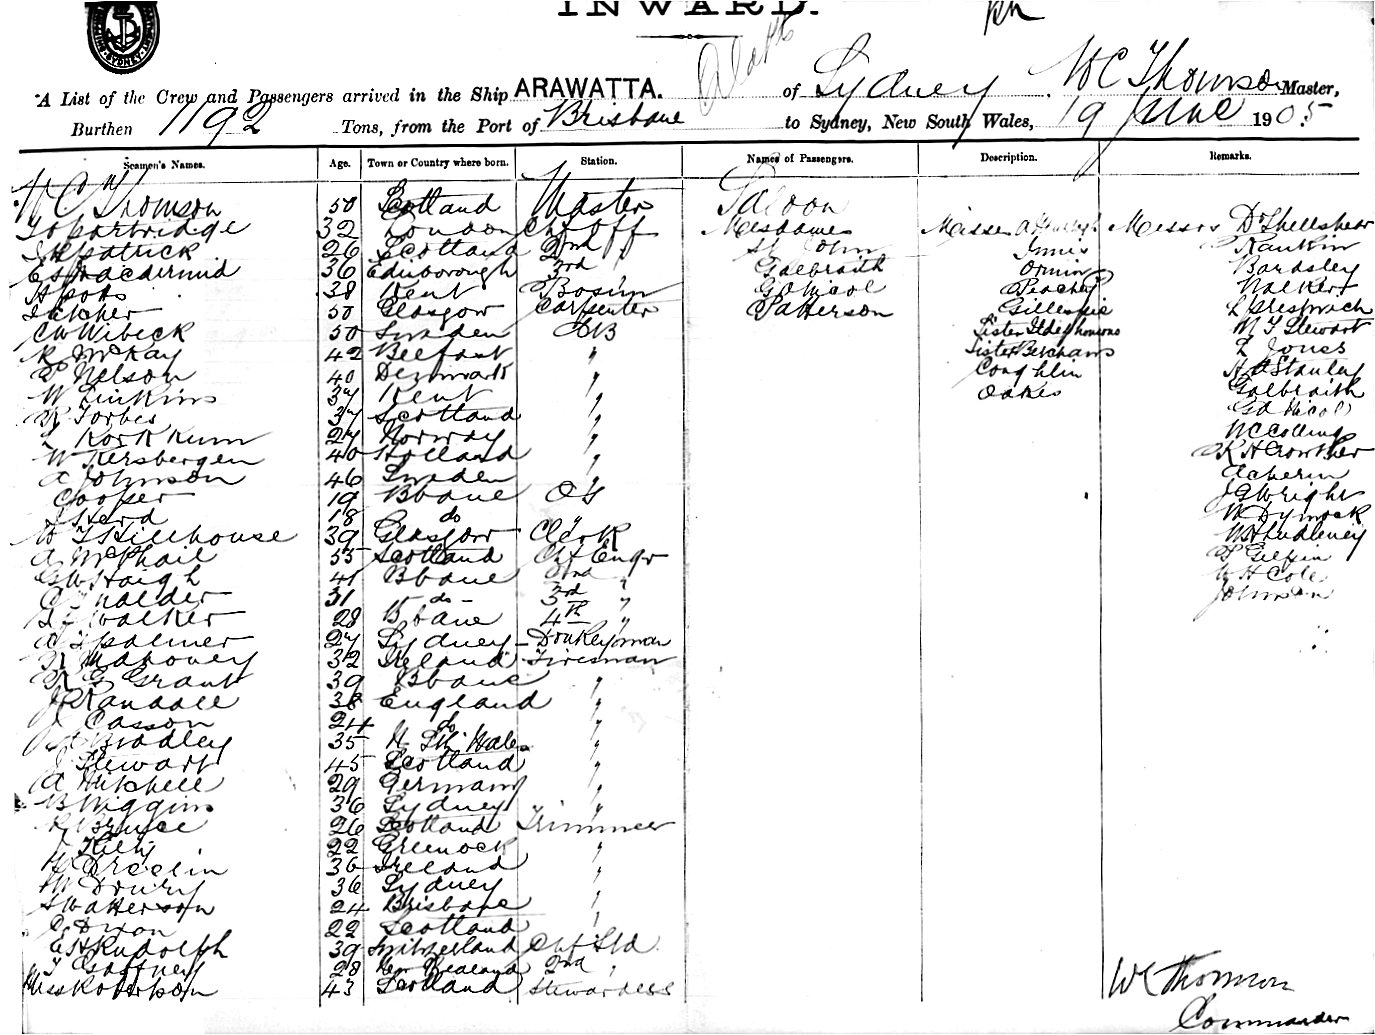 INWARD.
A List of the Crew and Passengers arrived in the Ship ARAWATTA. of Sydney, W C Thomson Master,
Burthen 1192 Tons, from the Port of Brisbane to Sydney, New South Wales, 19 June 1905
Seamen's Names. Age. Town or Country where born. Station. Names of Passengers. Description. Remarks.
W C Thomson 50 Scotland Master Saloon
Partridge 32 London Chf Off Mesdames Misses Messrs Dr Shellshear
Kilpatrick 26 Scotland 2nd " St John Innis Rankin
Macdermid 36 Edinborough 3rd " Galbraith Bardsley
A Potts 38 Kent Bosun G D Nicol Peachey Walker
50 Glasgow Carpenter Patterson Gillespie L Prestwich
C W Wibeck 50 Sweden AB Sister M T Stewart
R McKay 42 Belfast " Sister Berchams L Jones
Nelson 40 Denmark " Coughlin H A Stanley
W Jinkins 37 Kent " Oakes Galbraith
R Forbes 37 Scotland " G D Nicol
27 Norway " W C Colling
W Kersbergen 40 Holland " R H Crowther
A Johnson 46 Sweden "
Cooper 19 Bbane OS J G Wright
18 do " W Dymock
Hillhouse 39 Glasgow Clerk
A McPhail 55 Scotland Chf Engr
G W Haigh 41 Bbane 2nd " W H Cole
31 - do - 3rd " Johnson
Walker 28 Bbane 4th "
Palmer 27 Sydney Donkeyman
Mahoney 32 Ireland Fireman
R G Grant 39 Bbane "
J Randall 38 England "
Casson 24 do "
Bradley 35 N Sth Wales "
J Stewart 45 Scotland "
A Mitchell 29 Germany "
B Wiggins 36 Sydney "
R Bruce 26 Scotland Trimmer
Kelly 22 Greenock "
36 Ireland "
36 Sydney "
24 Brisbane "
Dixon 22 Scotland "
E H Rudolph 39 Switzerland Chf Std
T Gaffney 28 New Zealand 2nd "
Miss Robertson 43 Scotland Stewardess
W C Thomson
Commander